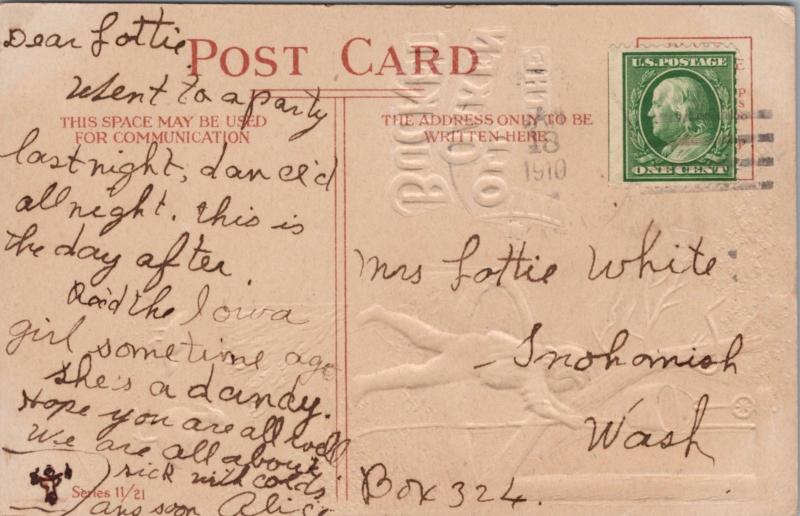 Dear Lottie
POST CARD
U.S. POSTAGE
ONE CENT
18
1910
THIS SPACE MAY BE USED
FOR COMMUNICATION
THE ADDRESS ONLY TO BE
WRITTEN HERE
Went to a party
last night, danc'd
all night. this is
the day after.
Rec'd the Iowa
girl sometime ago
she's a dandy.
Hope you are all well
We are all about
sick with colds.
ans soon Alice
Series 11/21
Mrs Lottie White
Snohomish
Wash
Box 324.